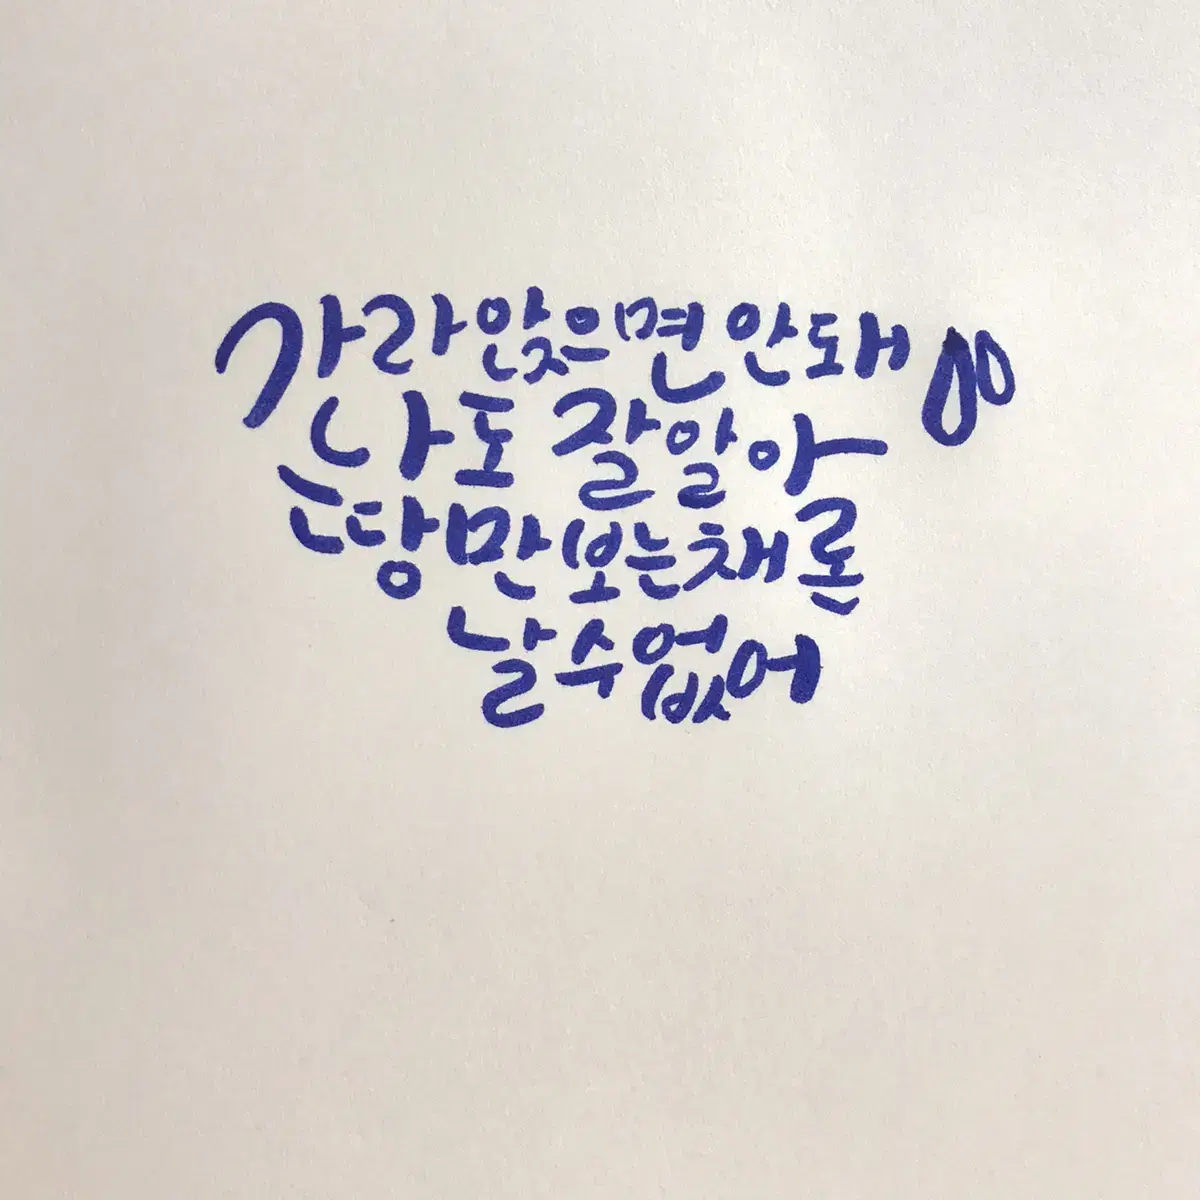 가라앉으면 안돼
나도 잘 알아
땅만 보는 채론
날 수 없어